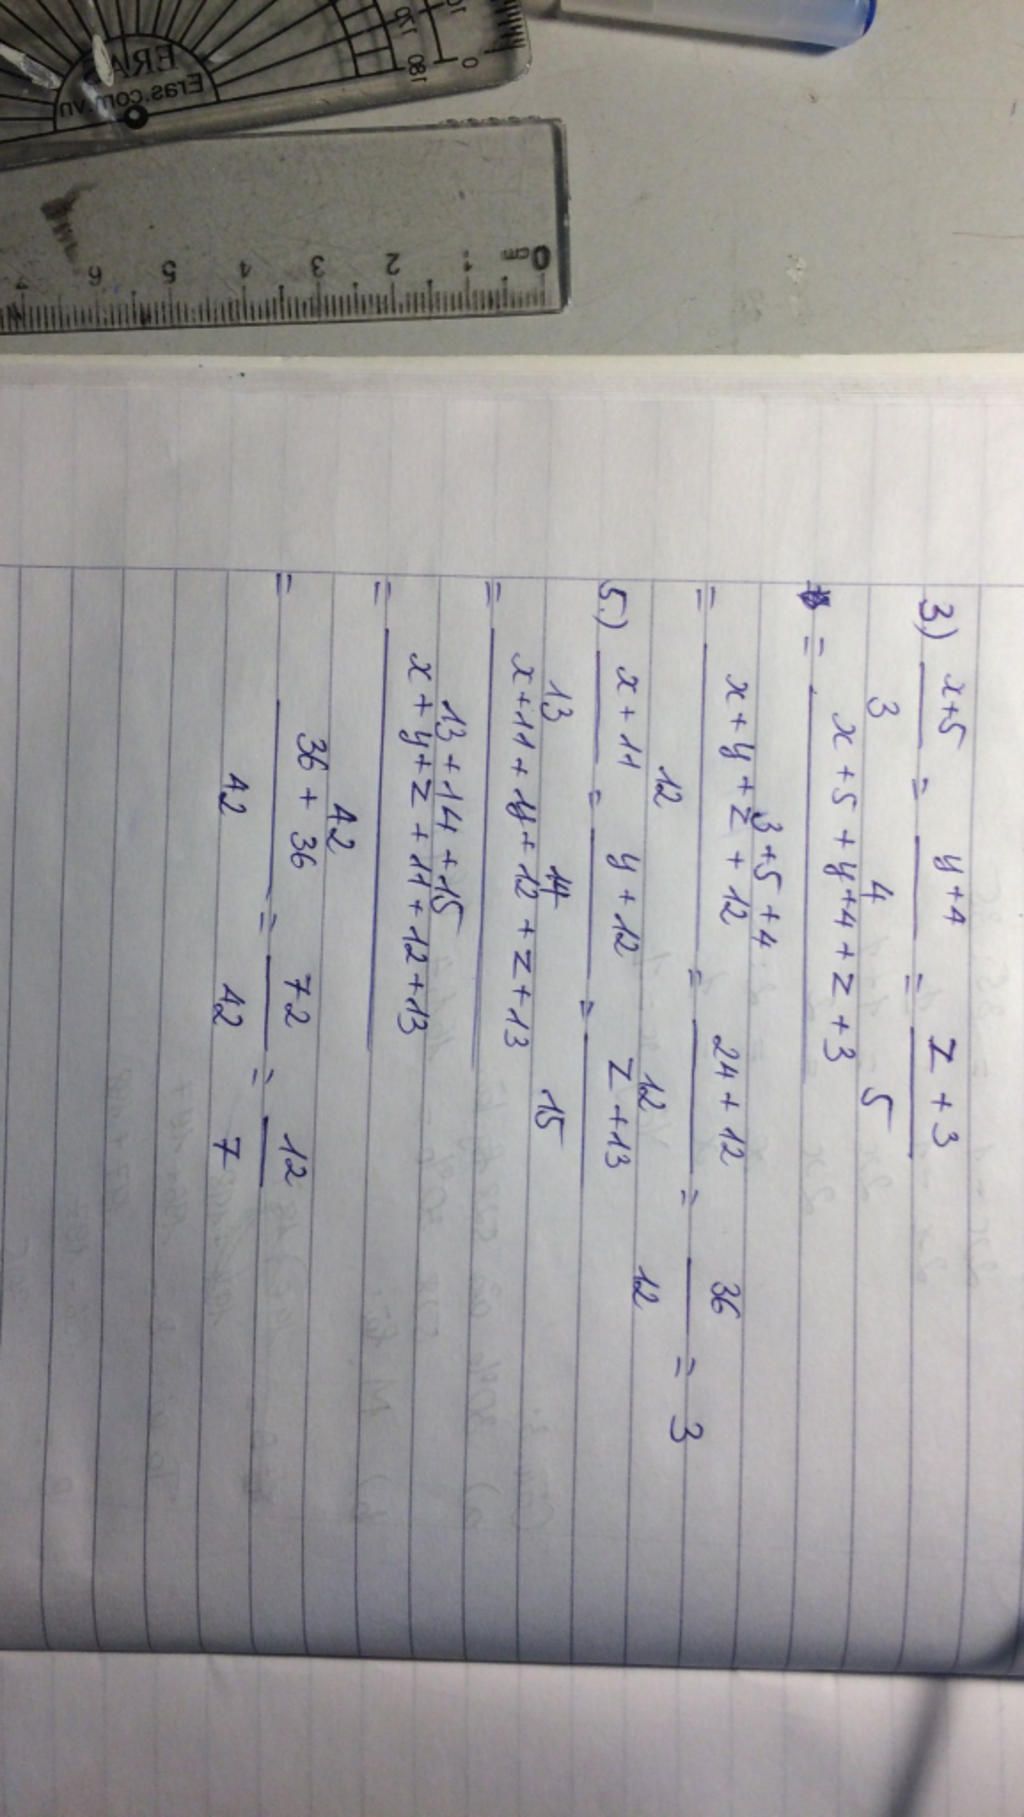 3.) x+5 = y+4 = z+3
3 4 5
= x+5+y+4+z+3
3+5+4
= x+y+z+12 = 24+12 = 36 = 3
12 12 12
5.) x+11 = y+12 = z+13
13 14 15
= x+11+y+12+z+13
13+14+15
= x+y+z+11+12+13
42
= 36+36 = 72 = 12
42 42 7
ERA
Eras.com.vn
180 0
170 10
0 cm 1 2 3 4 5 6 7